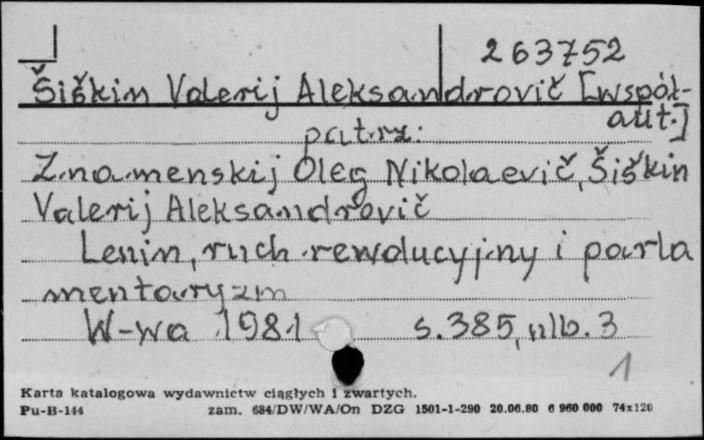 263752
Šiškin Valerij Aleksandrovič [współ-
aut.]
patrz:
Znamenskij Oleg Nikolaevič, Šiškin
Valerij Aleksandrovič
Lenin, ruch rewolucyjny i parla
mentaryzm
W-wa 1981 s.385, nlb.3
1
Karta katalogowa wydawnictw ciągłych i zwartych.
Pu-B-144 zam. 684/DW/WA/On DZG 1501-1-290 20.06.80 6 960 000 74x120